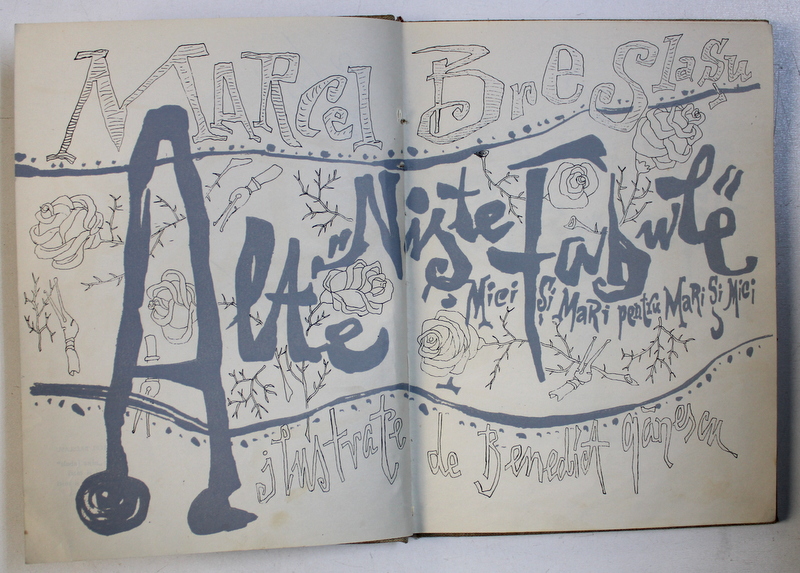 Marcel Breslaşu
Alte „Nişte Fabule“
Mici Şi Mari pentru Mari Şi Mici
ilustrate de Benedict Gănescu